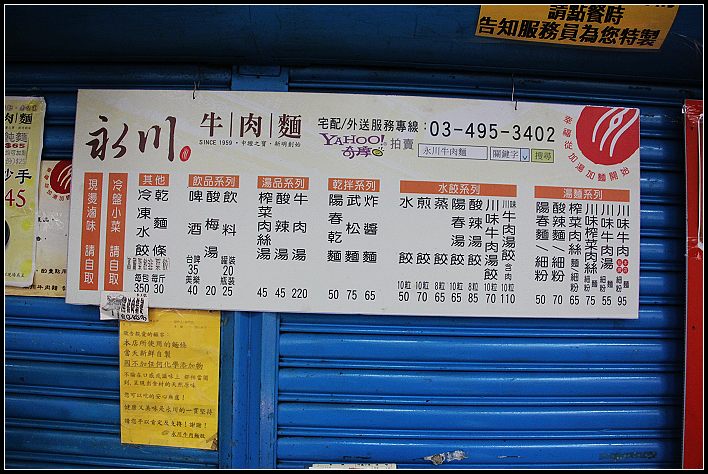 請點餐時
告知服務員為您特製
永川
牛|肉|麵
SINCE 1959・中壢之寶・新明創始
宅配/外送服務專線:03-495-3402
YAHOO!
奇摩
拍賣
永川牛肉麵
關鍵字
搜尋
幸福從加湯加麵開始
現燙滷味 請自取
冷盤小菜 請自取
其他
乾麵條 每斤 30
冷凍水餃 每包 350
飲品系列
飲料 罐裝 20 瓶裝 25
酸梅湯 20
啤酒 台啤 35 美樂 40
湯品系列
牛肉湯 220
酸辣湯 45
榨菜肉絲湯 45
乾拌系列
炸醬麵 65
武松麵 75
陽春乾麵 50
水餃系列
川味牛肉湯餃 含肉 10粒 110
川味牛肉湯餃 10粒 70
酸辣湯餃 8粒 85
陽春湯餃 8粒 65
蒸餃 8粒 65
煎餃 10粒 70
水餃 10粒 50
湯麵系列
川味牛肉麵 95
川味牛肉湯麵/細粉 55
川味榨菜肉絲麵/細粉 75
榨菜肉絲麵/細粉 65
酸辣麵/細粉 70
陽春麵/細粉 50
肉麵
$65
手
45
敬告親愛的顧客:
本店所使用的麵條
當天新鮮自製
因不加任何化學添加物
您可以吃的安心無慮!
健康又美味是永川的一貫堅持
請您予以肯定及支持!謝謝!
永川牛肉麵敬啟